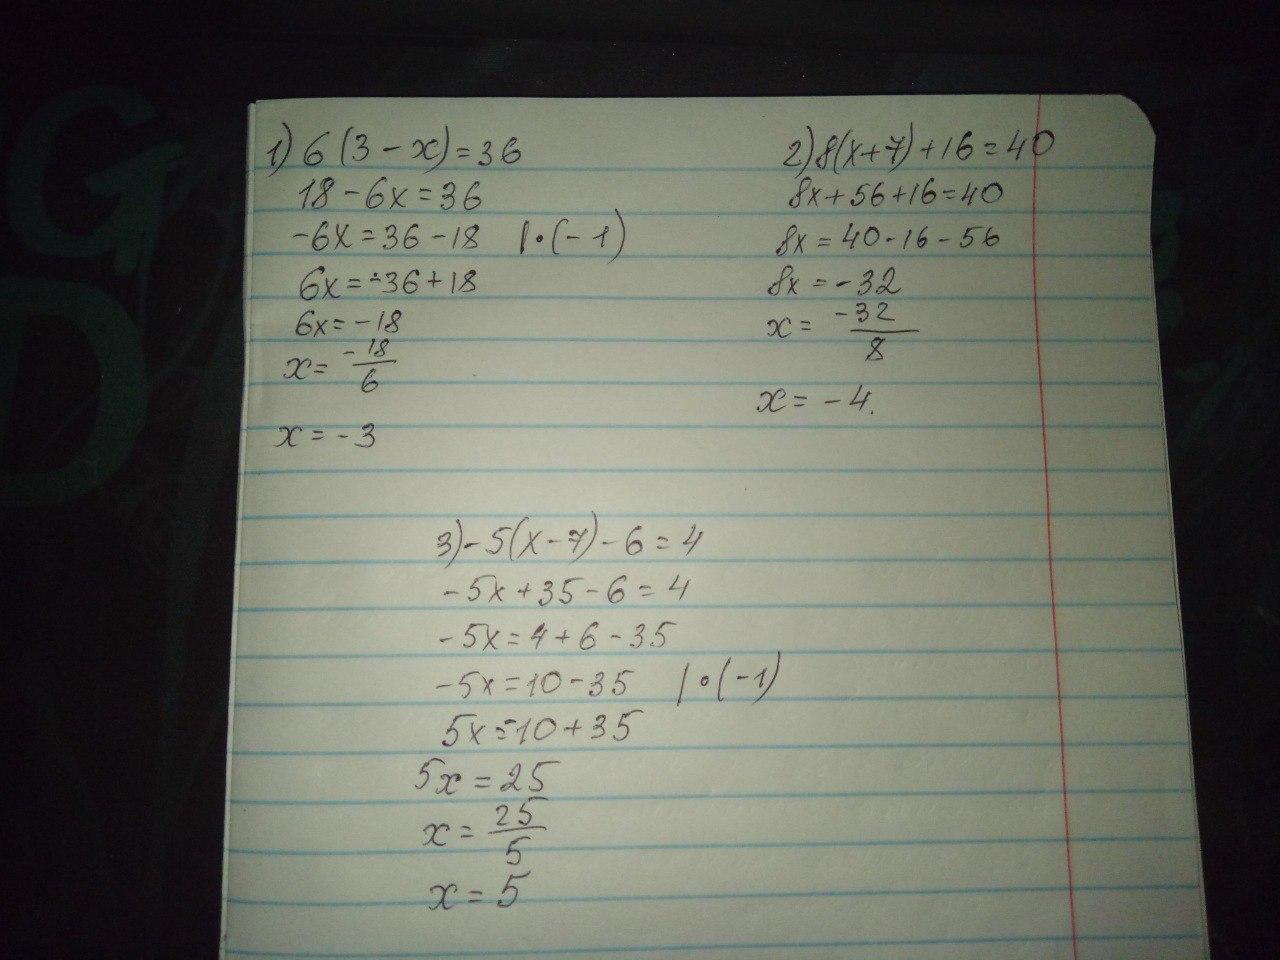 1) 6(3-x)=36
18-6x=36
-6x=36-18 |·(-1)
6x=-36+18
6x=-18
x=-18/6
x=-3
2) 8(x+7)+16=40
8x+56+16=40
8x=40-16-56
8x=-32
x=-32/8
x=-4.
3) -5(x-7)-6=4
-5x+35-6=4
-5x=4+6-35
-5x=10-35 |·(-1)
5x=-10+35
5x=25
x=25/5
x=5
G
D